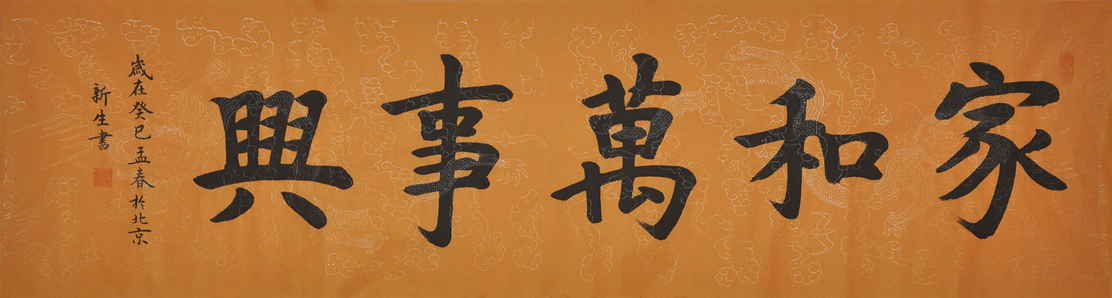 家和萬事興
歲在癸巳孟春於北京
新生書